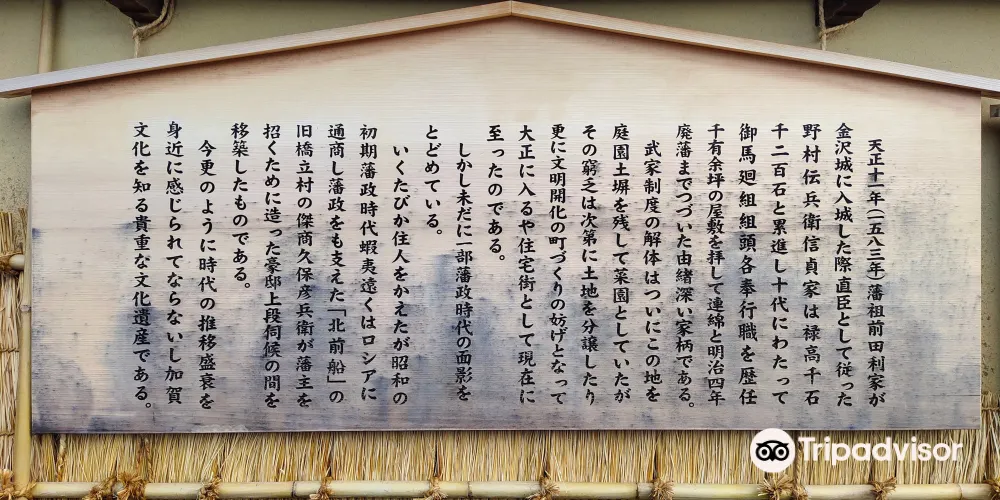 天正十一年(一五八三年)藩祖前田利家が
金沢城に入城した際直臣として従った
野村伝兵衛信貞家は禄高千石
千二百石と累進し十代にわたって
御馬廻組組頭各奉行職を歴任
千有余坪の屋敷を拝して連綿と明治四年
廃藩までつづいた由緒深い家柄である。
武家制度の解体はついにこの地を
庭園土塀を残して菜園としていたが
その窮乏は次第に土地を分譲したり
更に文明開化の町づくりの妨げとなって
大正に入るや住宅街として現在に
至ったのである。
しかし未だに一部藩政時代の面影を
とどめている。
いくたびか住人をかえたが昭和の
初期藩政時代蝦夷遠くはロシアに
通商し藩政をも支えた「北前船」の
旧橋立村の傑商久保彦兵衛が藩主を
招くために造った豪邸上段伺候の間を
移築したものである。
今更のように時代の推移盛衰を
身近に感じられてならないし加賀
文化を知る貴重な文化遺産である。
Tripadvisor